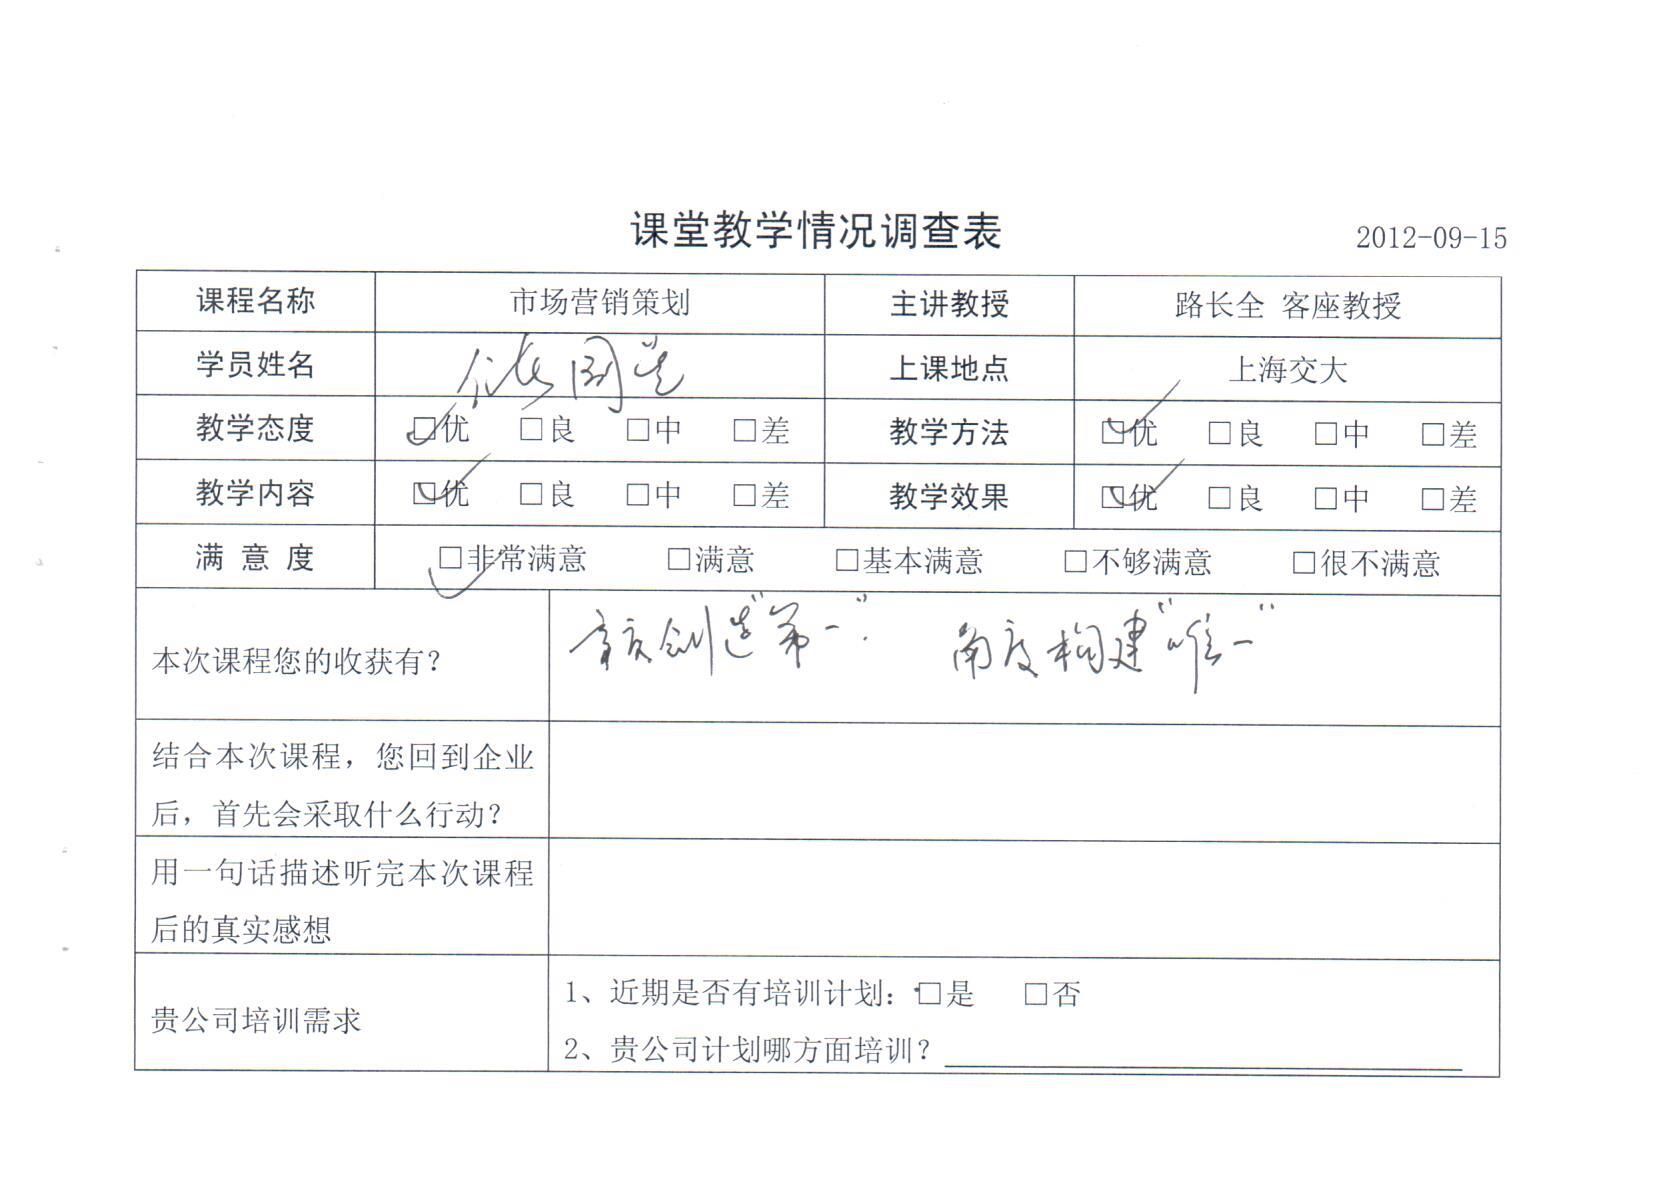 课堂教学情况调查表
2012-09-15
课程名称 市场营销策划 主讲教授 路长全 客座教授
学员姓名 上课地点 上海交大
教学态度 □优 □良 □中 □差 教学方法 □优 □良 □中 □差
教学内容 □优 □良 □中 □差 教学效果 □优 □良 □中 □差
满 意 度 □非常满意 □满意 □基本满意 □不够满意 □很不满意
本次课程您的收获有？ 创造“第一”. 构建“唯一”
结合本次课程，您回到企业
后，首先会采取什么行动？
用一句话描述听完本次课程
后的真实感想
贵公司培训需求
1、近期是否有培训计划：□是 □否
2、贵公司计划哪方面培训？